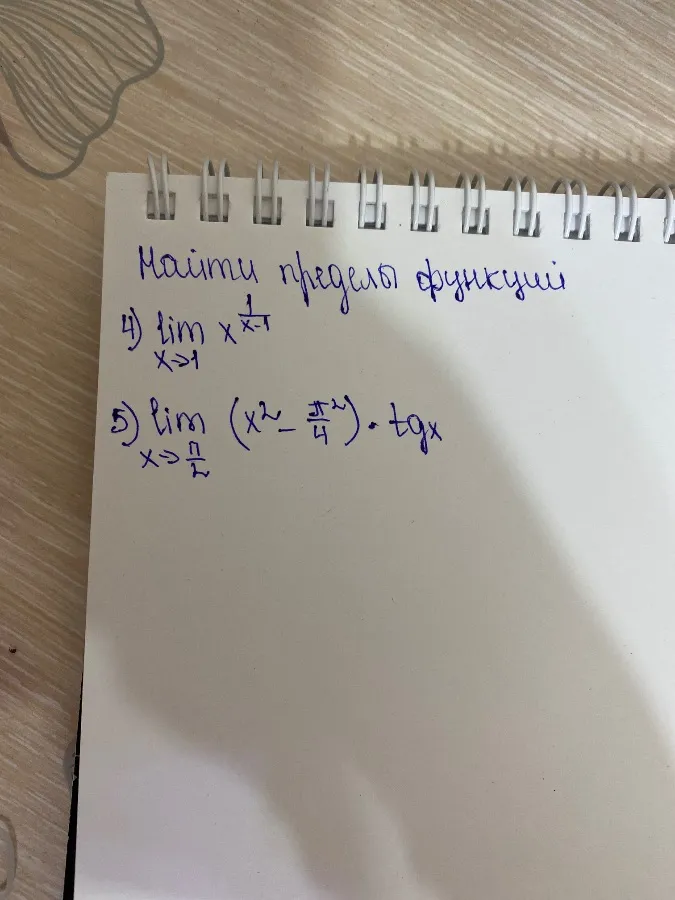 Найти пределы функций
4) lim x^(1/(x-1)) x->1
5) lim (x² - π²/4) · tgx x->π/2